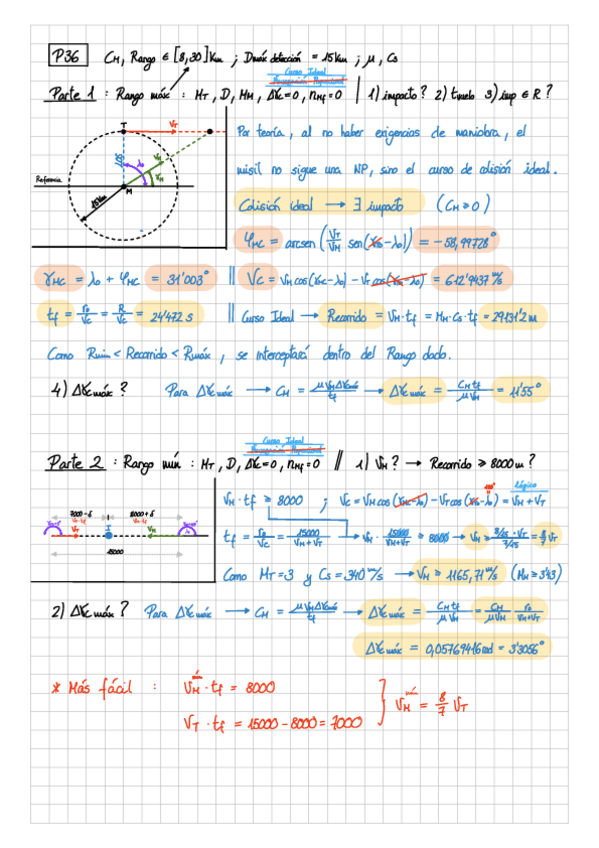 P36 CM, Rango ∈ [8,30] Km ; Dmáx detección = 15 Km ; μ, Cs
Curso Ideal
Navegación Proporcional
Parte 1 : Rango máx : MT, D, MM, Δγc=0, nMf=0 | 1) impacto? 2) tvuelo 3) imp ∈ R?
T VT
Referencia
M
15Km
Por teoría, al no haber exigencias de maniobra, el
misil no sigue una NP, sino el curso de colisión ideal.
Colisión ideal → ∃ impacto (CM ≥ 0)
φMC = arcsen (VT/VM sen(γT-λ0)) = -58,99728°
γMC = λ0 + φMC = 31'003° || VC = VM cos(γMC-λ0) - VT cos(γT-λ0) = 612'9437 m/s
tf = r0/VC = R/VC = 24'472 s || Curso Ideal → Recorrido = VM·tf = MM·Cs·tf = 29131'2 m
Como Rmin < Recorrido < Rmáx, se interceptará dentro del Rango dado.
4) Δγc máx? Para Δγc máx → CM = μVMΔγcmáx/tf → Δγc máx = CM tf/μ VM = 11'55°
Curso Ideal
Navegación Proporcional
Parte 2 : Rango mín : MT, D, Δγc=0, nMf=0 || 1) VM? → Recorrido ≥ 8000 m?
7000-δ 8000+δ
VT·tf VM·tf
VT I VM
15000
VM·tf ≥ 8000 ; VC = VM cos(γMC-λ0) - VT cos(γT-λ0) = VM+VT
Lógico
tf = r0/VC = 15000/VM+VT → VM · 15000/VM+VT ≥ 8000 → VM ≥ 8/15·VT / 7/15 = 8/7 VT
Como MT=3 y Cs=340 m/s → VM ≥ 1165,71 m/s (MM ≥ 3'43)
2) Δγc máx? Para Δγc máx → CM = μVMΔγcmáx/tf → Δγc máx = CM tf/μ VM = CM/μVM r0/VM+VT
Δγc máx = 0,05769416 rad = 3'3056°
* Más fácil : VM mín · tf = 8000
VT · tf = 15000 - 8000 = 7000
} VM mín = 8/7 VT